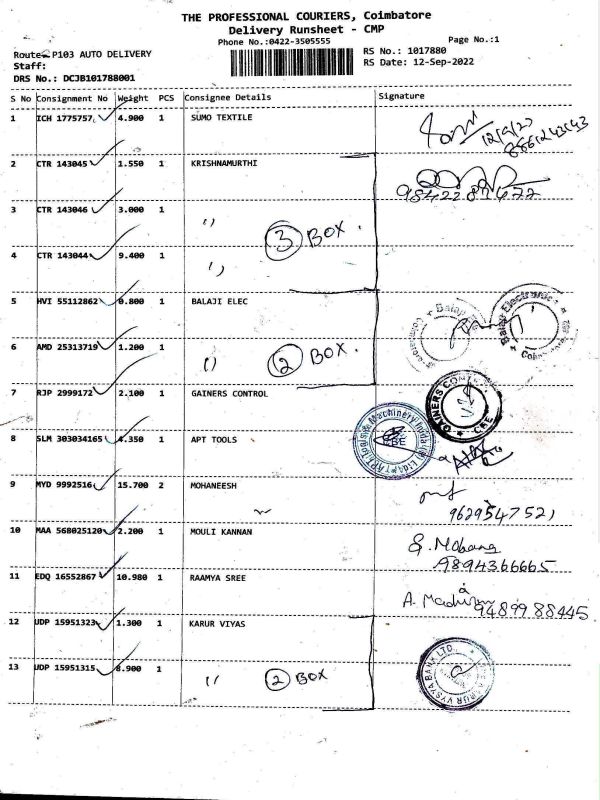 THE PROFESSIONAL COURIERS, Coimbatore
Delivery Runsheet - CMP
Phone No.:0422-3505555
Page No.:1
Route: P103 AUTO DELIVERY
RS No.: 1017880
Staff:
RS Date: 12-Sep-2022
DRS No.: DCJB101788001
S No Consignment No Weight PCS Consignee Details Signature
1 ICH 1775757 4.900 1 SUMO TEXTILE
2 CTR 143045 1.550 1 KRISHNAMURTHI
3 CTR 143046 3.000 1 "
3 BOX.
4 CTR 143044 9.400 1 "
5 HVI 55112862 0.800 1 BALAJI ELEC
Balaji Electronic
6 AMD 25313719 1.200 1 " 2 BOX.
7 RJP 2999172 2.100 1 GAINERS CONTROL
GAINERS CONT CBE
8 SLM 303034165 4.350 1 APT TOOLS
CBE
9 MYD 9992516 15.700 2 MOHANEESH
9629547521
10 MAA 568025120 2.200 1 MOULI KANNAN
9894366665
11 EDQ 16552867 10.980 1 RAAMYA SREE
9489988445
12 UDP 15951323 1.300 1 KARUR VIYAS
13 UDP 15951315 8.900 1 " 2 BOX
KARUR VYSYA BANK LTD.